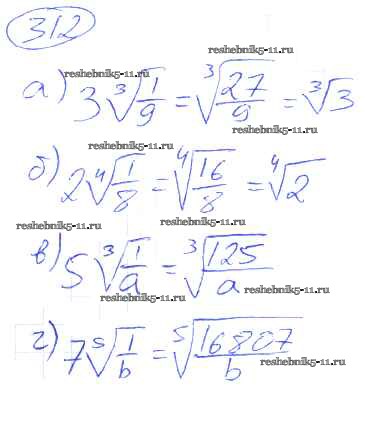 312
reshebnik5-11.ru
reshebnik5-11.ru
а) 3∛(1/9) = ∛(27/9) = ∛3
reshebnik5-11.ru
reshebnik5-11.ru
б) 2∜(1/8) = ∜(16/8) = ∜2
reshebnik5-11.ru
reshebnik5-11.ru
в) 5∛(1/a) = ∛(125/a)
reshebnik5-11.ru
reshebnik5-11.ru
г) 7⁵√(1/b) = ⁵√(16807/b)
reshebnik5-11.ru